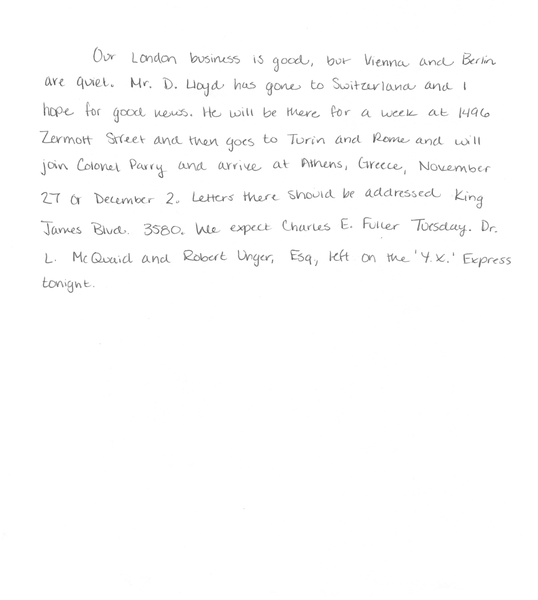 Our London business is good, but Vienna and Berlin
are quiet. Mr. D. Lloyd has gone to Switzerland and I
hope for good news. He will be there for a week at 1496
Zermott Street and then goes to Turin and Rome and will
join Colonel Parry and arrive at Athens, Greece, November
27 or December 2. Letters there should be addressed King
James Blvd. 3580. We expect Charles E. Fuller Tuesday. Dr.
L. McQuaid and Robert Unger, Esq., left on the 'Y.X.' Express
tonight.